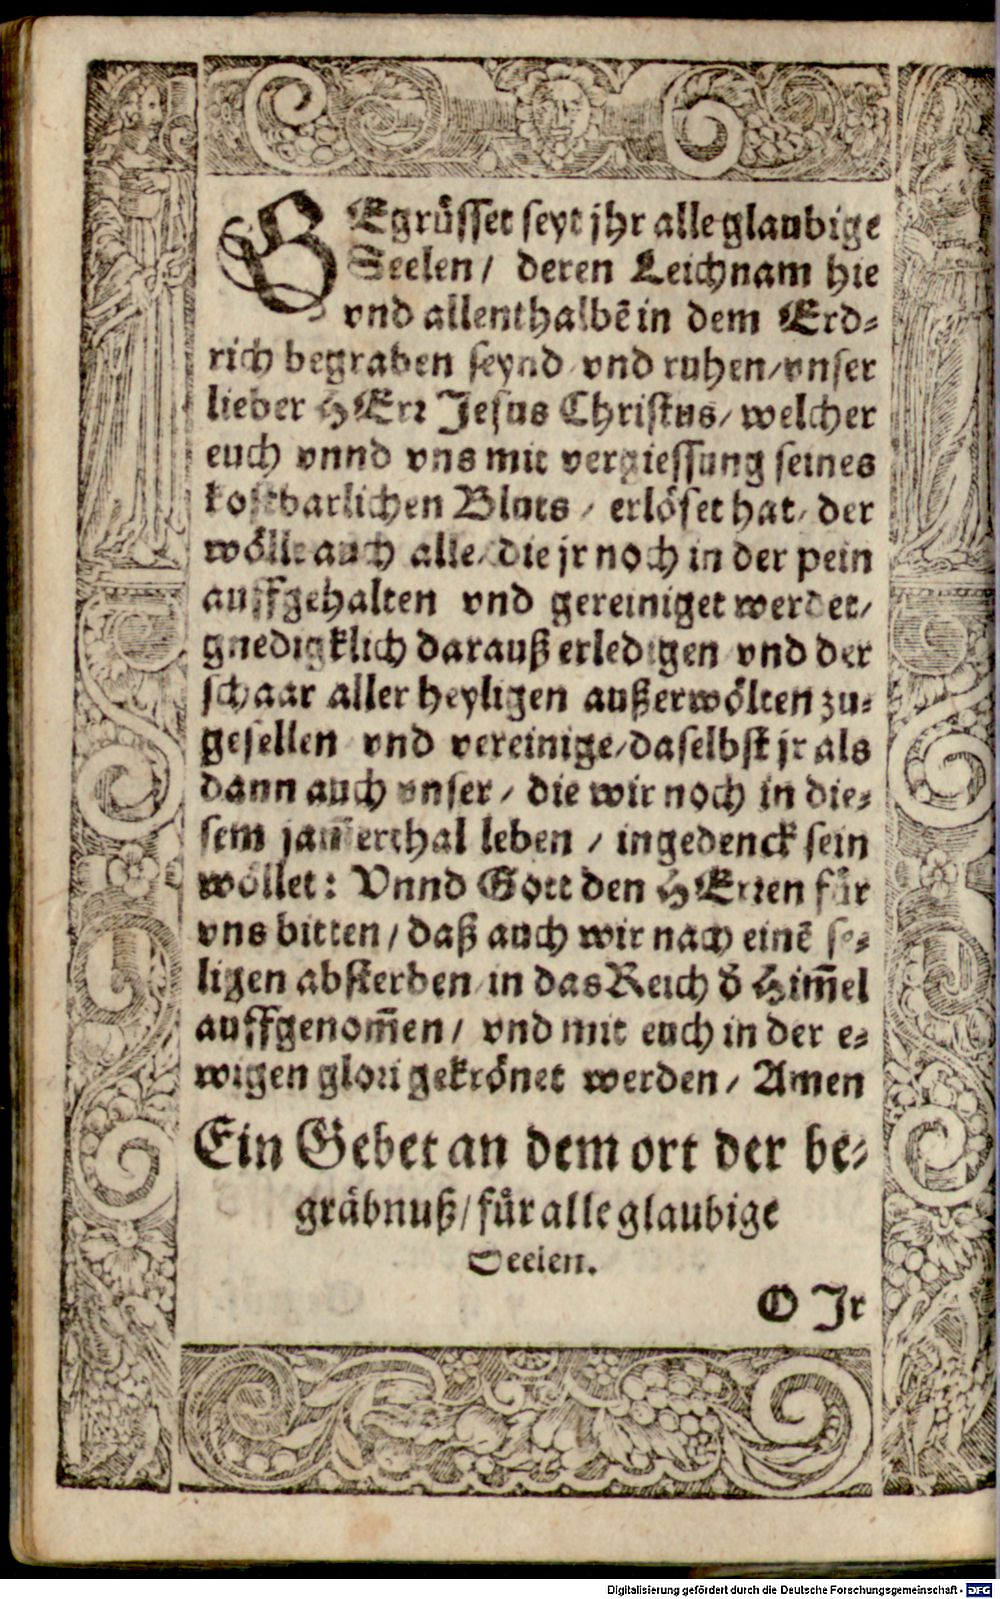 BEgrüsset seyt jhr alle glaubige
Seelen / deren Leichnam hie
vnd allenthalbē in dem Erd⸗
rich begraben seynd vnd ruhen / vnser
lieber HErr Jesus Christus / welcher
euch vnnd vns mit vergiessung seines
kostbarlichen Bluts / erlöset hat / der
wölle auch alle / die jr noch in der pein
auffgehalten vnd gereiniget werdet /
gnedigklich darauß erledigen vnd der
schaar aller heyligen außerwölten zu⸗
gesellen vnd vereinige / daselbst jr als
dann auch vnser / die wir noch in die⸗
sem jam̄erthal leben / ingedenck sein
wöllet: Vnnd Gott den HErren für
vns bitten / daß auch wir nach einē se⸗
ligen absterben in das Reich d̄ Him̄el
auffgenom̄en / vnd mit euch in der e⸗
wigen glori gekrönet werden / Amen
Ein Gebet an dem ort der be⸗
gräbnuß / für alle glaubige
Seelen.
O Jr
Digitalisierung gefördert durch die Deutsche Forschungsgemeinschaft - DFG